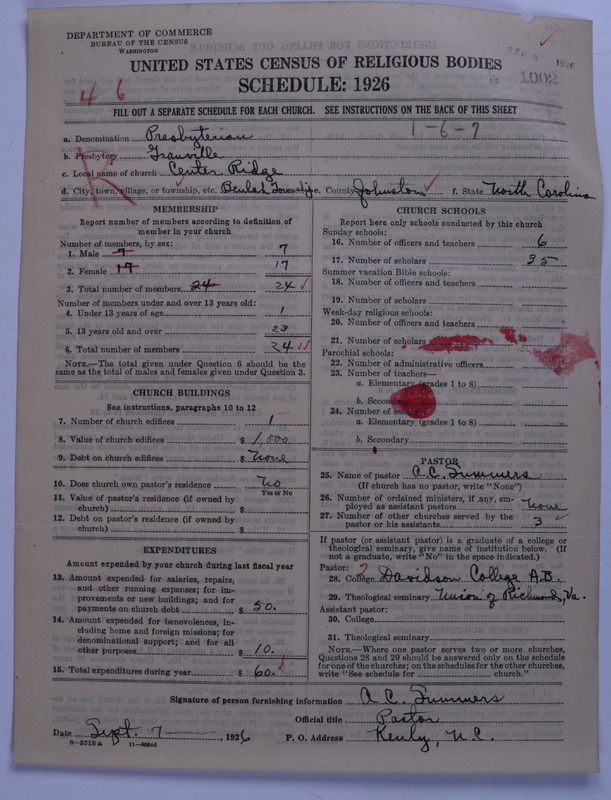 DEPARTMENT OF COMMERCE
BUREAU OF THE CENSUS
WASHINGTON
UNITED STATES CENSUS OF RELIGIOUS BODIES
SCHEDULE: 1926
SEP 8 1926
1002
4 6
FILL OUT A SEPARATE SCHEDULE FOR EACH CHURCH. SEE INSTRUCTIONS ON THE BACK OF THIS SHEET
1-6-7
a. Denomination Presbyterian
b. Presbytery Granville
c. Local name of church Center Ridge
d. City, town, village, or township, etc. Beulah Township e. County Johnston f. State North Carolina
R
MEMBERSHIP
Report number of members according to definition of
member in your church
Number of members, by sex:
1. Male 7 7
2. Female 17 17
3. Total number of members 24 24
Number of members under and over 13 years old:
4. Under 13 years of age 1
5. 13 years old and over 23
6. Total number of members 24
NOTE.—The total given under Question 6 should be
same as the total of males and females given under Question 3.
CHURCH BUILDINGS
See instructions, paragraphs 10 to 12
7. Number of church edifices 1
8. Value of church edifices $ 1,000
9. Debt on church edifices $ None
10. Does church own pastor's residence No
Yes or No
11. Value of pastor's residence (if owned by
church) $
12. Debt on pastor's residence (if owned by
church) $
EXPENDITURES
Amount expended by your church during last fiscal year
13. Amount expended for salaries, repairs,
and other running expenses; for im-
provements or new buildings; and for
payments on church debt $ 50.
14. Amount expended for benevolences, in-
cluding home and foreign missions; for
denominational support; and for all
other purposes $ 10.
15. Total expenditures during year $ 60.
CHURCH SCHOOLS
Report here only schools conducted by this church
Sunday schools:
16. Number of officers and teachers 6
17. Number of scholars 35
Summer vacation Bible schools:
18. Number of officers and teachers
19. Number of scholars
Week-day religious schools:
20. Number of officers and teachers
21. Number of scholars
Parochial schools:
22. Number of administrative officers
23. Number of teachers—
a. Elementary (grades 1 to 8)
b. Secondary
24. Number of scholars—
a. Elementary (grades 1 to 8)
b. Secondary
PASTOR
25. Name of pastor A. C. Summers
(If church has no pastor, write "None")
26. Number of ordained ministers, if any, em-
ployed as assistant pastors None
27. Number of other churches served by the
pastor or his assistants 3
If pastor (or assistant pastor) is a graduate of a college or
theological seminary, give name of institution below. (If
not a graduate, write "No" in the space indicated.)
Pastor:
28. College Davidson College A.B.
29. Theological seminary Union of Richmond, Va.
Assistant pastor:
30. College
31. Theological seminary
NOTE.—Where one pastor serves two or more churches,
Questions 28 and 29 should be answered only on the schedule
for one of the churches; on the schedules for the other churches,
write "See schedule for church."
Signature of person furnishing information A. C. Summers
Official title Pastor
Date Sept. 7 1926 P. O. Address Kenly, N.C.
8—5318a